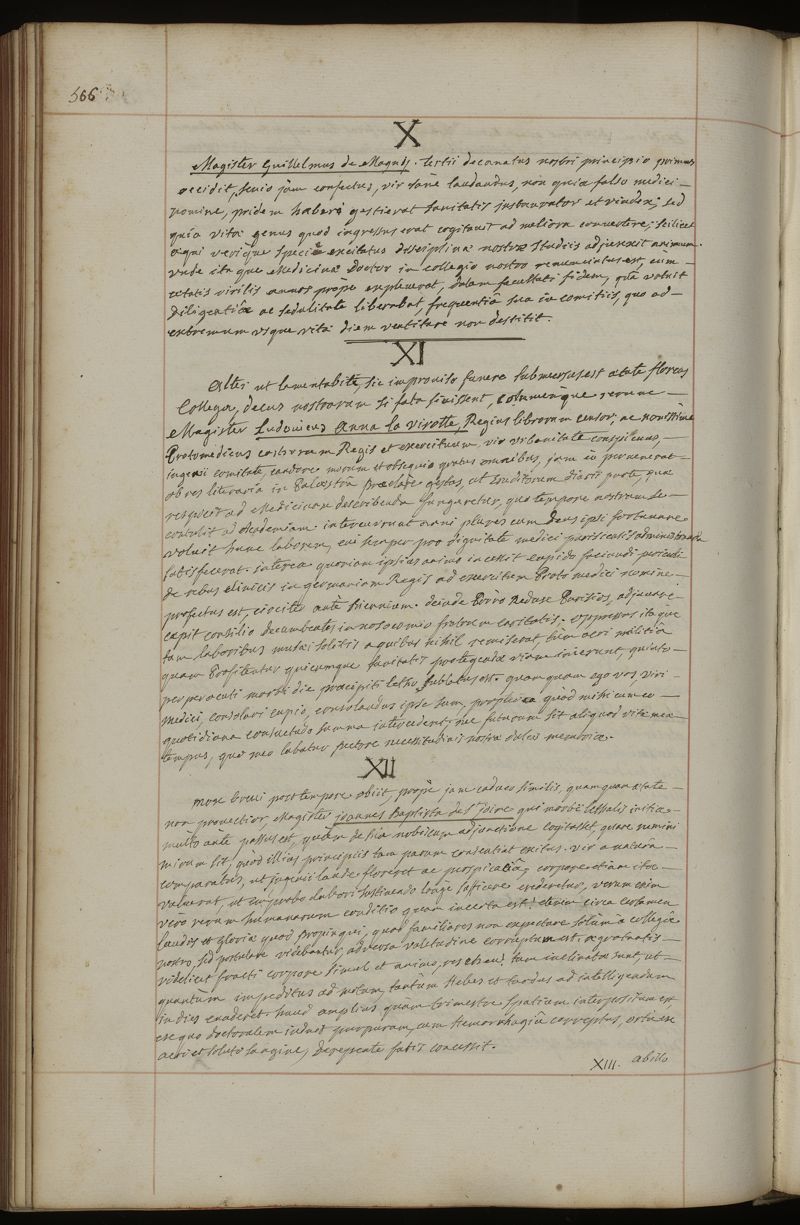 566
X
Magister Guillelmus de Magny. tertii decanatus nostri principio primus
occidit, senio jam confectus, vir sane laudandus, non quia falso medici
nomine, pridem haberi gestierat sanitatis instaurator et vindex; sed
quia vitæ genus quod ingressus erat cogitavit ad meliora convertere; scilicet
æqui verique specie excitatus disciplinæ nostræ studiis adjunxit animum.
unde itaque Medicinæ Doctor in collegio nostro renunciatus est, cum
ætatis virilis annos prope expleverat, datam facultati fidem, quâ voluit
diligentiâ ac sedulitate liberabat, frequentia sua in comitiis, quo ad
extremum usque vitæ diem ventitare non destitit.
XI
Alter ut lamentabili, sic improviso funere submersus est ætate florens
Collega, decus nostrarum si fata sivissent, columenque rerum
Magister Ludovicus Anna la virotte, Regius librorum censor, ac novissime
Protomedicus castrorum Regis et exercituum, vir urbanitate conspicuus,
ingenii comitate, candore morum et obsequio gratus omnibus, jam eo pervenerat
ob res literaria in Palæstra præclare gestas, ut Eruditorum diarii parte, quæ
respicit ad Medicinam describenda fungeretur, quo tempore nostrum se
contulit ad Academiam. intercurrunt anni plures cum Deus ipsi fortunare
voluit hunc laborem, cui semper pro dignitate medici parisiensis administrando
satisfecerat. interea quoniam ipsius animo incessit cupido faciendi periculi
de rebus clinicis in germaniam Regis ad exercitum Proto medici nomine
profectus est, cicciter ante triennium. deinde Porro Redux Parisios, adjuvare
cepit consilio decumbentes in nosocomio fratrum caritatis. oppressus itaque
tam laboribus musæi solitis a quibus nihil remiserat, tum acri militiâ
quam Profitentur quicumque sanitatis protegendæ viam inierunt, quinto
per peracuti morbi die præcipiti letho sublatus est. quamquam ego vos viri
medici, consolari cupio, consolandus ipse sum, propterea quod mihi cum eo
quotidiana consuetudo summa intercedent. ne futurum sit aliquod vitæ meæ
tempus, quo meo labatur pectore necessitudinis nostræ dulcis memoria.
XII
mox brevi post tempore obiit, prope jam caduco similis, quamquam ætate
non provectior, Magister joannes Baptista de S.t joire qui morbi lethalis initia
multo ante passus est, quam de sua nobiscum adjunctione cogitasset, quare nemini
mirum sit, quod illius principiis tam parum consentiat exitus. vir a natura
comparatus, ut ingenii laude floreret ac perspicaciâ, corpore etiam ita
valuerat, ut improbo labori sustinendo longe sufficere crederetur, verum enim
vero rerum humanarum conditio quam incerta est! etenim circa certamen
laudis et gloriæ quod Propinqui, quod familiares non expectare solum a collegâ
nostro, sed postulare videbantur, adversa valetudine corruptum est. ægrotantis
videlicet fracti corpore simul et animo, res eheu! tam inclinatæ sunt, ut
quantum impeditus ad motum, tantum Hebes et tardus ad intelligendum
in dies evaderet. haud amplius quam trimestre spatium interpositum est
ex quo doctoralem induit purpuram, cum Hemorrhagia correptus, orta ex
acri et soluto sanguine, derepente fatis concessit.
XIII. ab illo